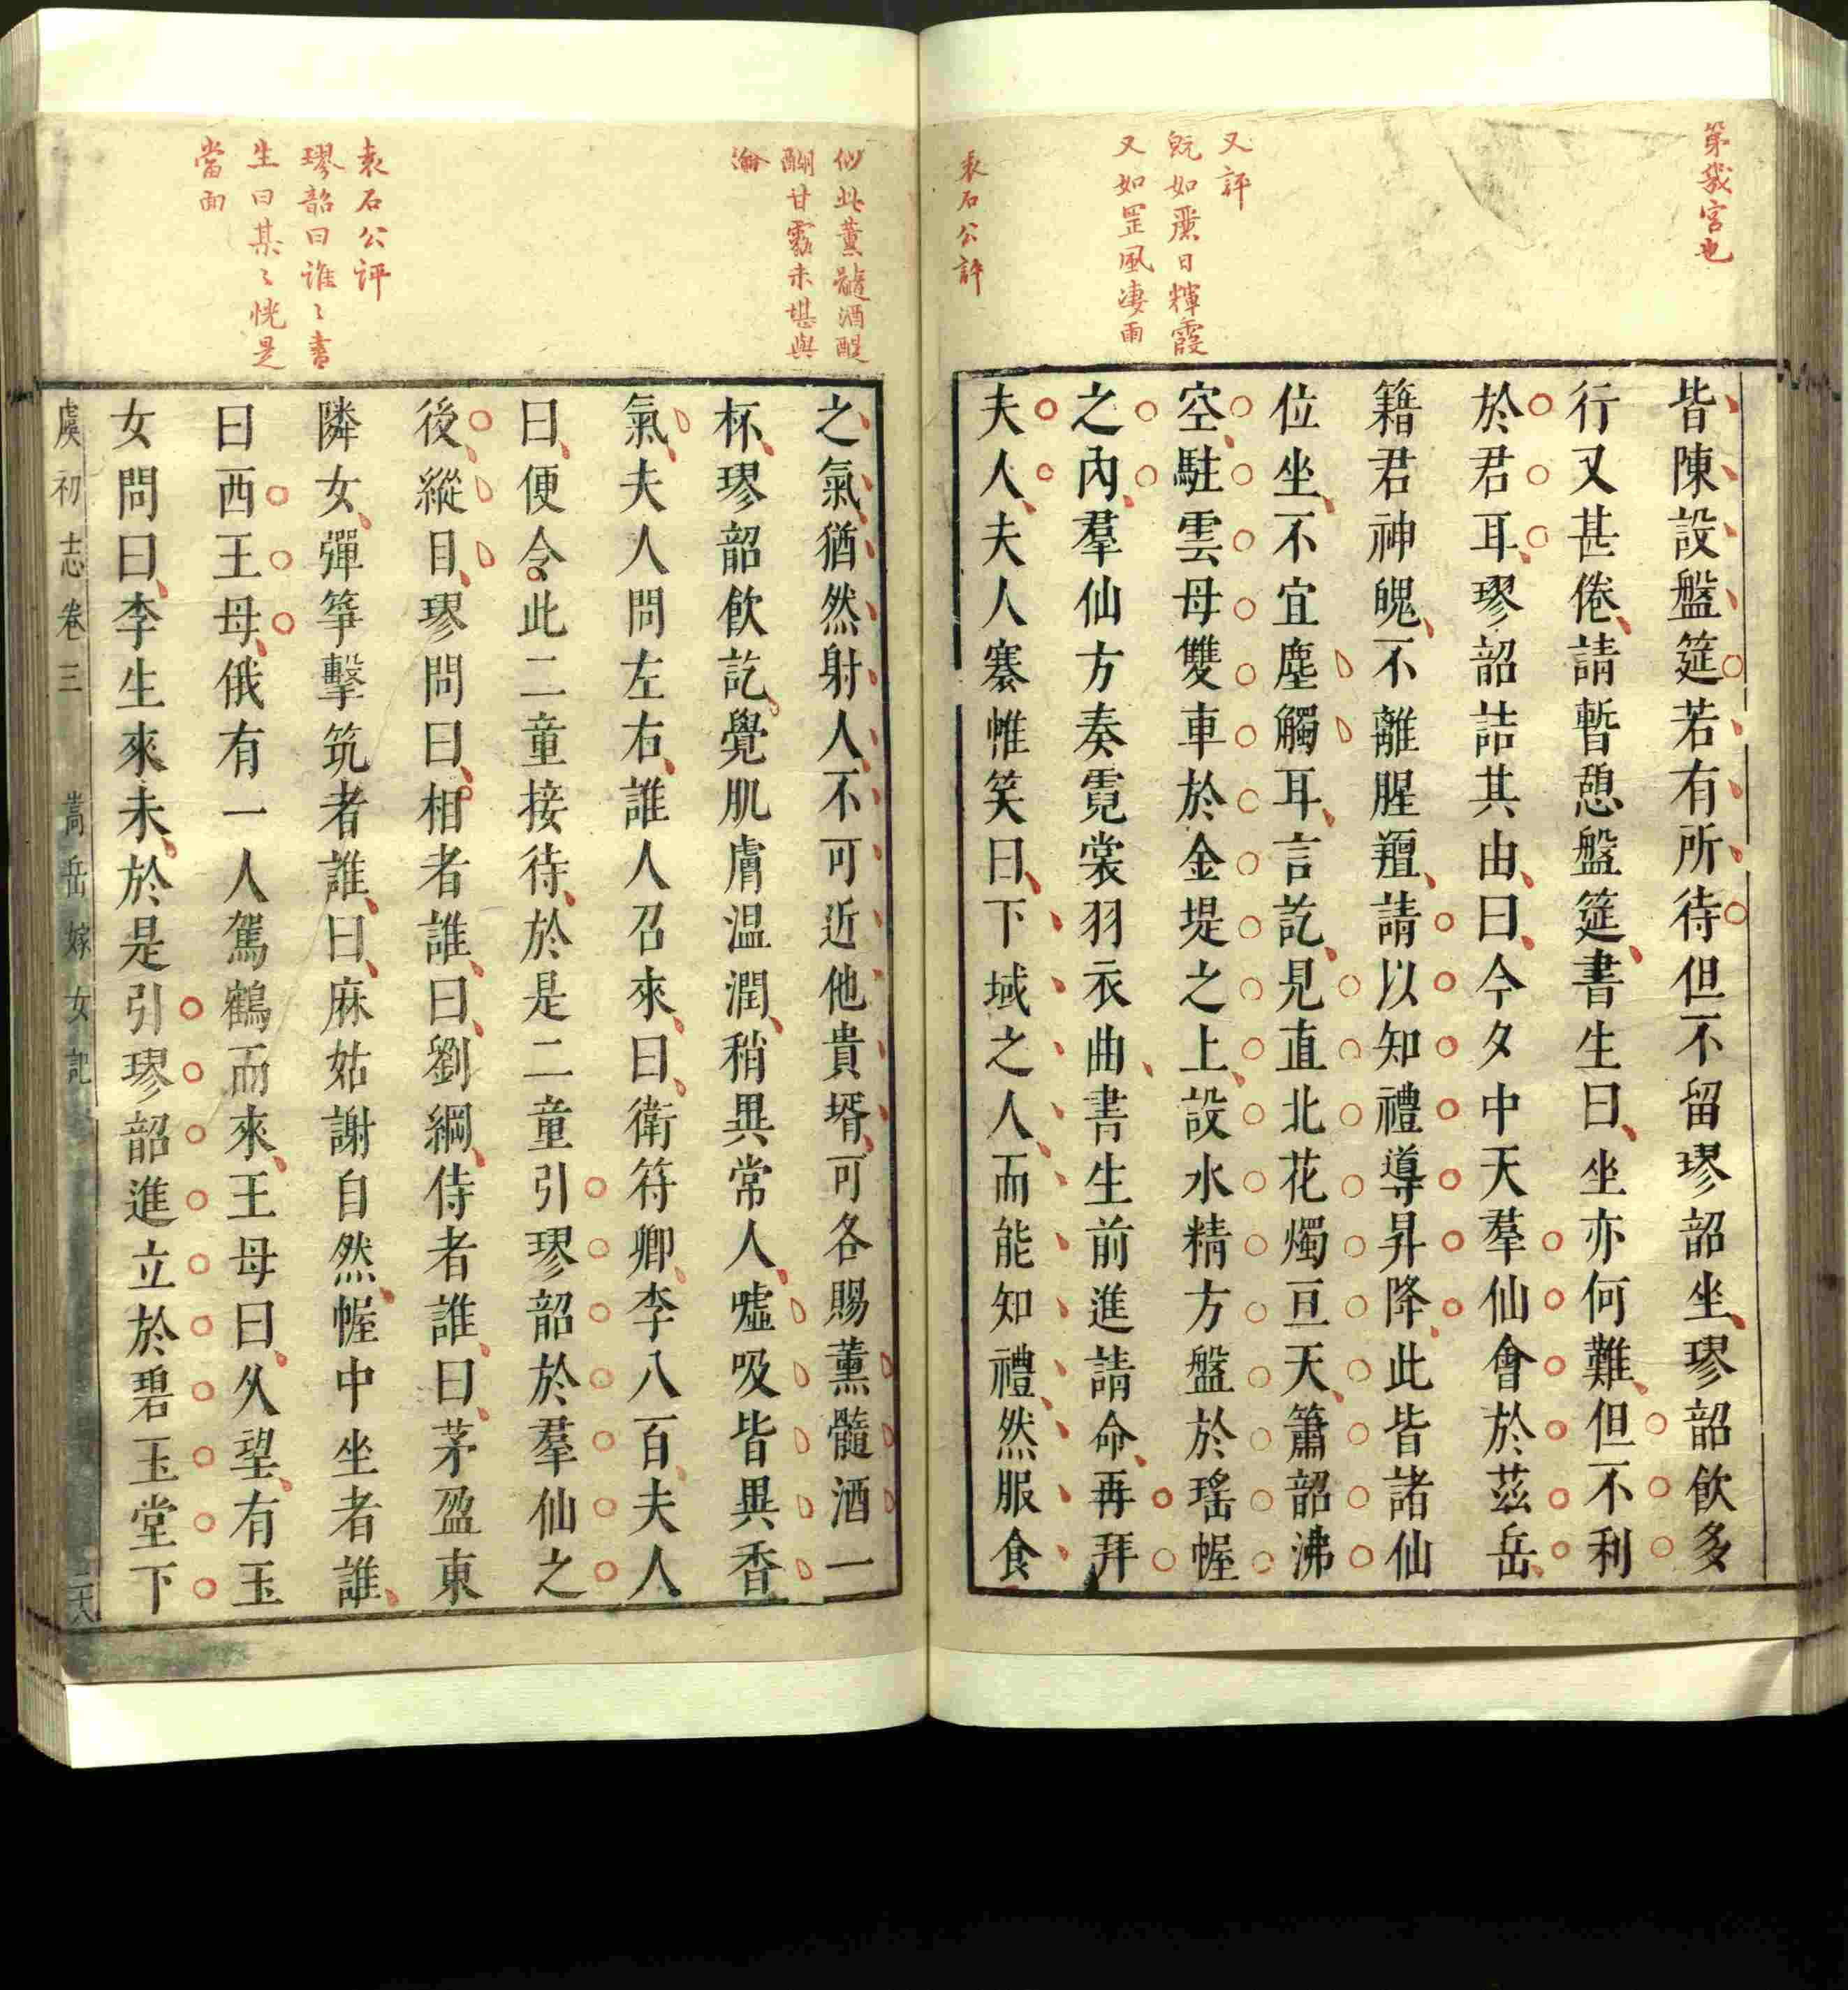 第幾宮也
又評
既如麗日輝霞
又如罡風凄雨
袁石公評
皆陳設盤筵若有所待但不留璆韶坐璆韶飲多
行又甚倦請暫憩盤筵書生曰坐亦何難但不利
於君耳璆韶詰其由曰今夕中天羣仙會於茲岳
籍君神魄不離腥羶請以知禮導昇降此皆諸仙
位坐不宜塵觸耳言訖見直北花燭亘天簫韶沸
空駐雲母雙車於金堤之上設水精方盤於瑤幄
之內羣仙方奏霓裳羽衣曲書生前進請命再拜
夫人夫人褰帷笑曰下域之人而能知禮然服食
似此薰髓酒醍
醐甘露未堪與
瀹
袁石公評
璆韶曰誰〻書
生曰某〻恍是
當面
之氣猶然射人不可近他貴壻可各賜薰髓酒一
杯璆韶飲訖覺肌膚温潤稍異常人噓吸皆異香
氣夫人問左右誰人召來曰衛符卿李八百夫人
曰便令此二童接待於是二童引璆韶於羣仙之
後縱目璆問曰相者誰曰劉綱侍者誰曰茅盈東
隣女彈箏擊筑者誰曰麻姑謝自然幄中坐者誰
曰西王母俄有一人駕鶴而來王母曰久望有玉
女問曰李生來未於是引璆韶進立於碧玉堂下
虞初志卷三 嵩岳嫁女記 二六